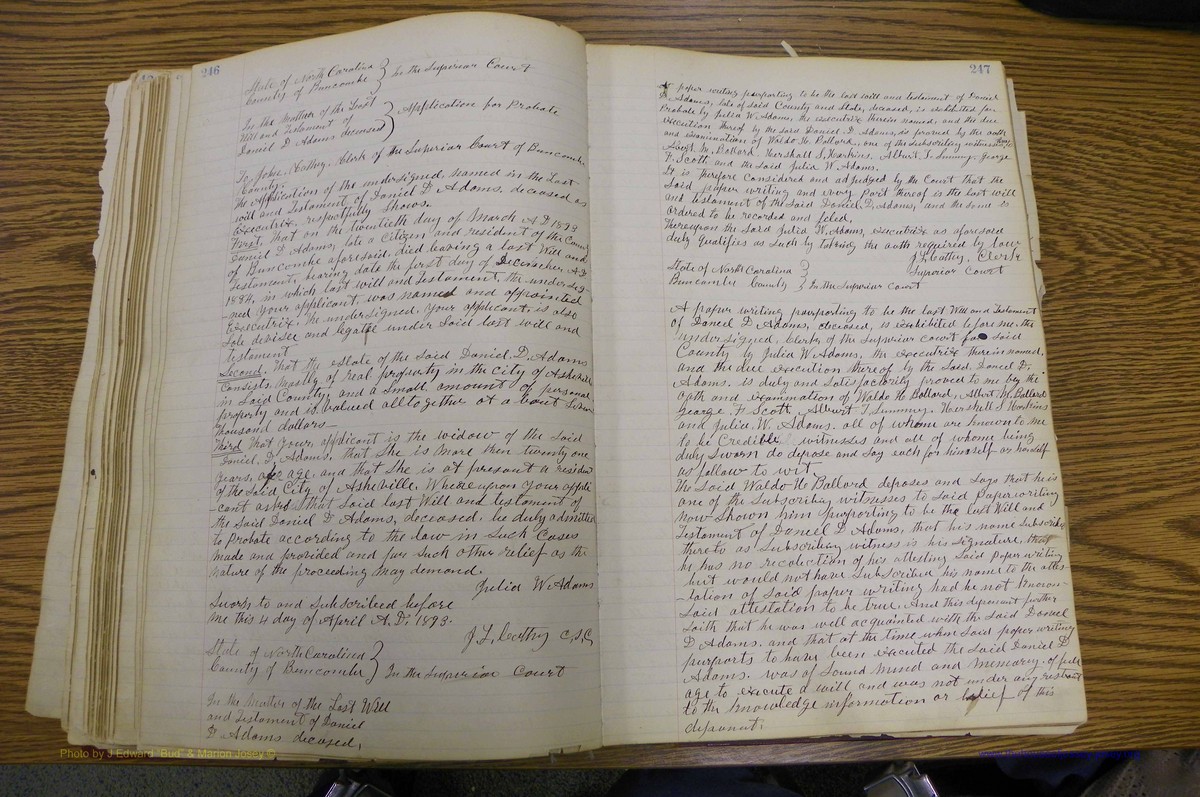 246
State of North Carolina } In the Superior Court
County of Buncombe
In the Matter of the Last
Will and Testament of } Application for Probate
Daniel D Adams deceased
To John L. Cathey, Clerk of the Superior Court of Buncombe
County:
The Application of the undersigned, named in the Last
will and Testament of Daniel D Adams, deceased as
Executrix, respectfully Shows.
First, that on the twentieth day of March A.D 1893
Daniel D Adams, late a Citizen and resident of the County
of Buncombe aforesaid, died leaving a last Will and
Testament, bearing date the first day of December, A.D
1884, in which last will and Testament, the undersig
-ned your applicant was named and appointed
Executrix, the undersigned, your applicant, is also
Sole devisee and legatee under Said last will and
testament
Second, that the estate of the Said Daniel. D. Adams
Consists, mostly of real property in the city of Asheville
in Said County, and a Small amount of personal
property and is valued alltogether at a bout
thousand dollars—
Third That your applicant is the widow of the Said
Daniel. D. Adams, that she is more then twenty one
years, of age, and that She is at presant a resident
of the Said City of Asheville. Whereupon your appli
-cant asks that Said last Will and testament of
the Said Daniel D Adams, deceased, be duly admitted
to Probate according to the law in Such Cases
made and provided and for Such other relief as the
nature of the proceeding may demand.
Julia W. Adams
Sworn to and Subscribed before
me this 4 day of April A.D. 1893.
J L Cathey C.S.C.
State of North Carolina } In the Superior Court
County of Buncombe
In the Matter of the Last Will
and Testament of Daniel
D Adams deceased,
247
A paper writing purporting to be the last will and testament of Daniel
D. Adams, late of said County and State, deceased, is exhibited for
Probate by Julia W. Adams, the executrix therein named, and the due
execution thereof by the said Daniel. D. Adams, is proved by the oath
and examination of Waldo H. Ballard, one of the subscribing witnesses,
M. Ballard, Hershall S. Harkins, Albert. T. Summey, George
F. Scott, and the Said Julia W. Adams.
It is therefore Considered and adjudged by the Court that the
Said paper writing and every Part thereof is the last will
and testament of the Said Daniel. D. Adams, and the same is
Ordered to be recorded and filed,
Thereupon the Said Julia W. Adams, executrix as aforesaid
duly qualifies as such by taking the oath required by law
J L Cathey, Clerk
Superior Court
State of North Carolina } In the Superior Court
Buncombe County
A paper writing purporting to be the last Will and Testament
of Daniel D Adams, deceased, is exhibited before me, the
undersigned, Clerk of the Superior court for Said
County by Julia W. Adams, the executrix therein named,
and the due execution thereof by the Said Daniel D,
Adams. is duly and Satisfactorily proved to me by the
oath and examination of Waldo H. Ballard, Albert M. Ballard
George. F. Scott, Albert T, Summey. Hershall S Harkins
and Julia. W. Adams. all of whome are known to me
to be Credible witnesses and all of whome being
duly Sworn do depose and Say each for himself or herself
as follow to wit
The Said Waldo H. Ballard deposes and Says that he is
one of the Subscribing witnesses to Said Paper writing
now Shown him purporting to be the last Will and
Testament of Daniel D Adams, that his name Subscribed
thereto as Subscribing witness is his Signature, that
he has no recolection of his attesting Said Paper writing
but would not have Subscribed his name to the attes-
-tation of Said paper writing had he not known
Said attestation to be true, And this deponant further
Saith that he was well acquainted with the Said Daniel
D Adams. and that at the time when Said paper writing
purports to have been executed the Said Daniel D
Adams. was of Sound Mind and Memory. of full
age to execute a will and was not under any restraint
to the knowledge information or belief of this
deponant.
Photo by J Edward "Bud" & Marion Josey ©